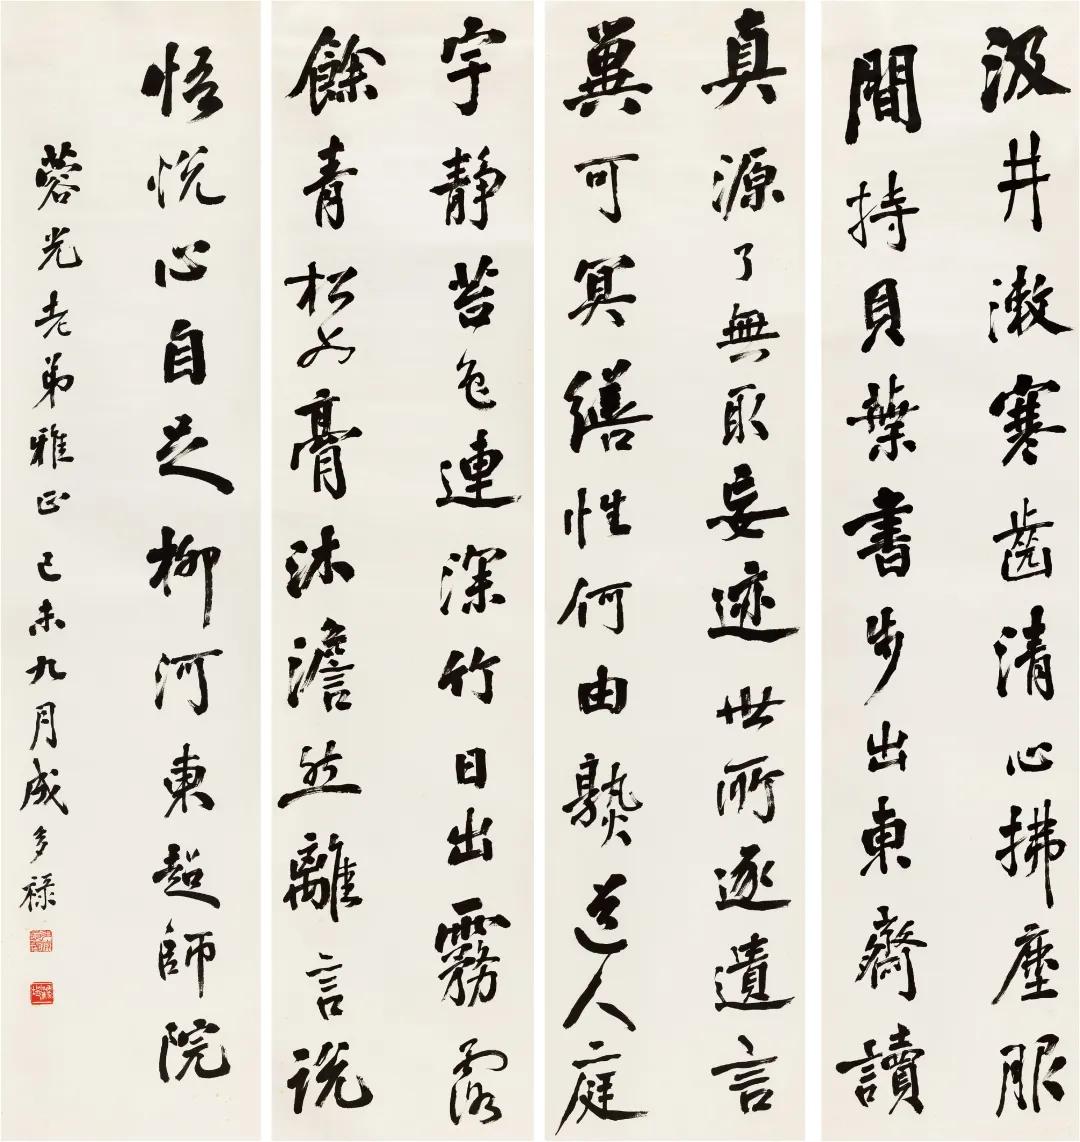 汲井漱寒齒清心拂塵服
閒持貝葉書步出東齋讀
真源了無取妄迹世所逐遺言
冀可冥繕性何由熟道人庭
宇靜苔色連深竹日出霧露
餘青松如膏沐澹然離言説
悟悅心自足柳河東超師院
蓉光老弟雅正己未九月成多祿